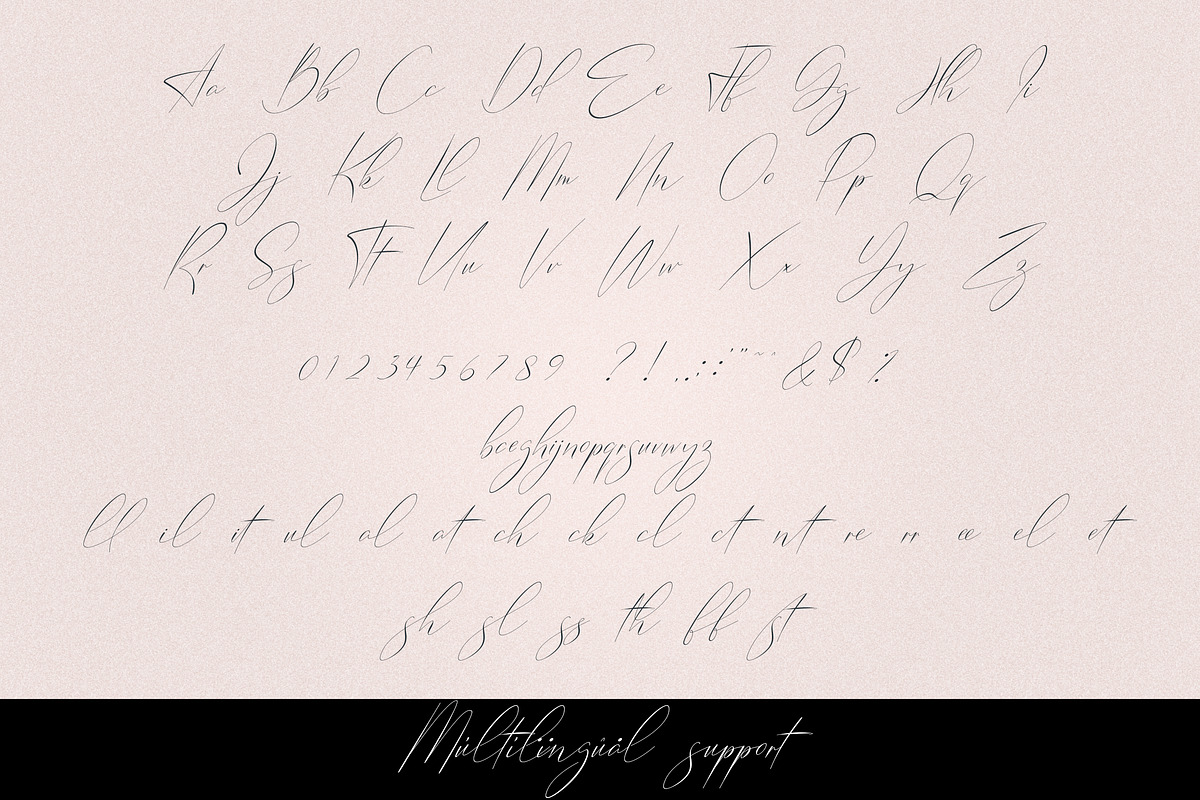 Aa Bb Cc Dd Ee Ff Gg Hh Ii
Jj Kk Ll Mm Nn Oo Pp Qq
Rr Ss Tt Uu Vv Ww Xx Yy Zz
0 1 2 3 4 5 6 7 8 9 ? ! , . ; : ' " ~ ^ & $ ?
bceghijnopqrsuvwyz
ll il it ul al at ch ck cl ct nt re rr ee el et
sh sl ss th ff st
Múltilingüal support